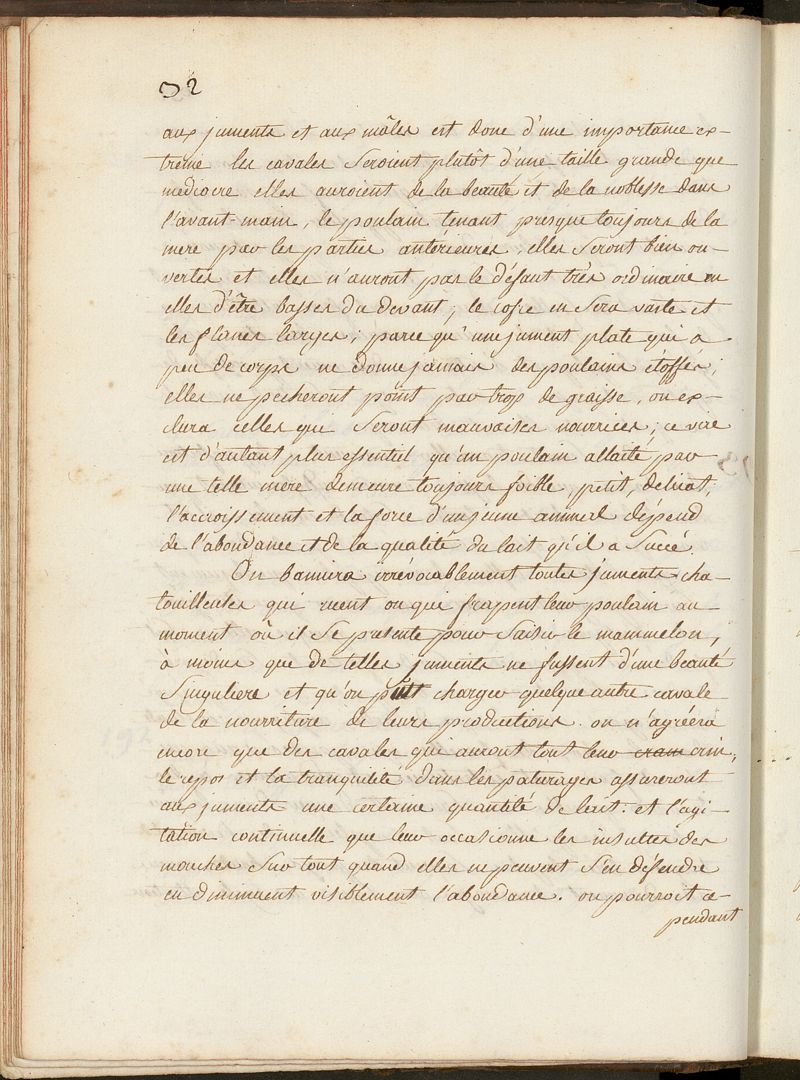 92
aux juments et aux mâles est donc d'une importance ex-
treme les cavales seroient plutôt d'une taille grande que
mediocre elles auroient de la beauté et de la noblesse dans
l'avant-main, le poulain tenant presque toujours de la
mere par les parties antérieures, elles seront bien ou-
vertes et elles n'auront pas le défaut très ordinaire en
elles d'être basses du devant; le cofre en sera vaste et
les flancs larges; parce qu'une jument plate qui a
peu de corps ne donne jamais des poulains étoffés;
elles ne pecheront point par trop de graisse, on ex-
clura celles qui seront mauvaises nourrices; ce vice
est d'autant plus essentiel qu'un poulain allaité par
une telle mere demeure toujours foible, petit, delicat,
l'accroissement et la force d'un jeune animal dépend
de l'abondance et de la qualité du lait qu'il a succé.
On bannira irrévocablement toutes juments cha-
touilleuses qui ruent ou qui frapent leur poulain au
moment où il se présente pour saisir le mammelon,
à moins que de telles juments ne fussent d'une beauté
singuliere et qu'on pût charger quelque autre cavale
de la nourriture de leurs productions. on n'agréera
encore que des cavales qui auront tout leur cram crin,
le repos et la tranquilité dans les paturages assureront
aux juments une certaine quantité de lait. et l'agi-
tation continuelle que leur occasionne les insultes des
mouches sur tout quand elles ne peuvent s'en défendre
en diminuent visiblement l'abondance. on pourroit ce-
pendant